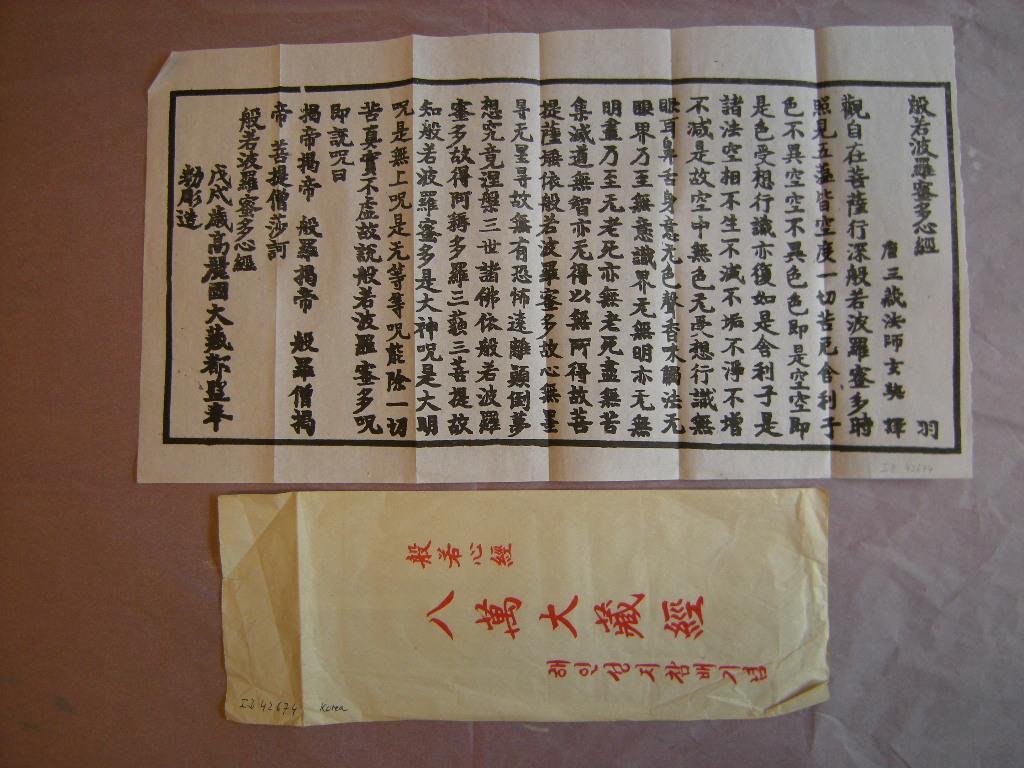 般若波羅蜜多心經 羽
唐三藏法師玄奘 譯
觀自在菩薩行深般若波羅蜜多時
照見五蘊皆空度一切苦厄舍利子
色不異空空不異色色即是空空即
是色受想行識亦復如是舍利子是
諸法空相不生不滅不垢不淨不增
不減是故空中無色无受想行識無
眼耳鼻舌身意无色聲香味觸法无
眼界乃至無意識界无無明亦无無
明盡乃至无老死亦無老死盡無苦
集滅道無智亦无得以無所得故菩
提薩埵依般若波羅蜜多故心無罣
㝵无罣㝵故無有恐怖遠離顛倒夢
想究竟涅槃三世諸佛依般若波羅
蜜多故得阿耨多羅三藐三菩提故
知般若波羅蜜多是大神呪是大明
呪是無上呪是无等等呪能除一切
苦真實不虛故說般若波羅蜜多呪
即說呪曰
揭帝揭帝 般羅揭帝 般羅僧揭
帝 菩提僧莎訶
般若波羅蜜多心經
戊戌歲高麗國大藏都監奉
勅彫造
ID 42674
般若心經
八萬大藏經
해인성지참배기념
ID 42674 Korea